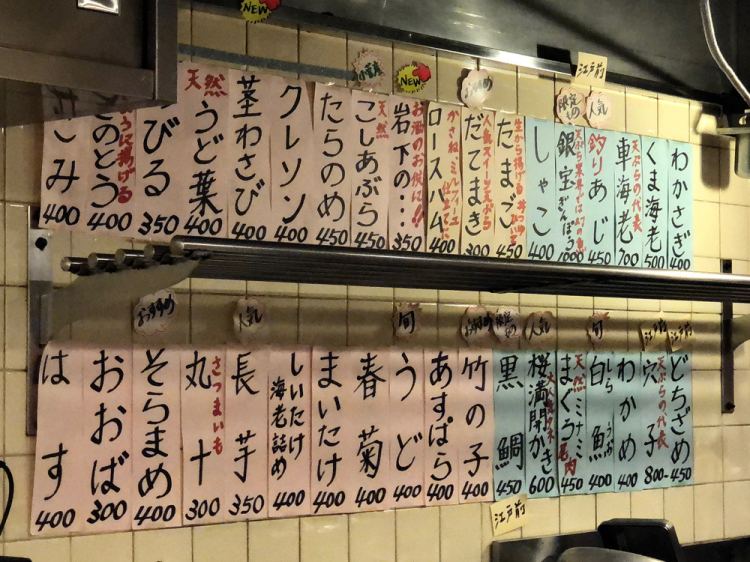 わかさぎ 400
くま海老 500
天ぷらの代表
車海老 700
釣りあじ 450
銀宝 ぎんぽう 1000
しゃこ 400
たまご 450
だてまき 300
ロースハム 400
お酒のお供に!!
岩下の・・・ 350
天然
こしあぶら 450
たらのめ 450
クレソン 400
茎わさび 400
天然
うど葉 400
びる 350
に揚げる
のとう 400
み 400
江戸前
人気
おすすめ
NEW
NEW
江戸前
どちざめ 450
江戸前
天ぷらの代表
穴子 800-
わかめ 400
旬
白魚 しらうお 400
天然ミナミ
まぐろ 450
人気
桜満開かき 600
黒鯛 450
おすすめ
竹の子 400
あすぱら 400
旬
うど 400
春菊 400
まいたけ 400
しいたけ
海老詰め 400
人気
長芋 350
さつまいも
丸十 300
おすすめ
そらまめ 400
おおば 300
はす 400
江戸前